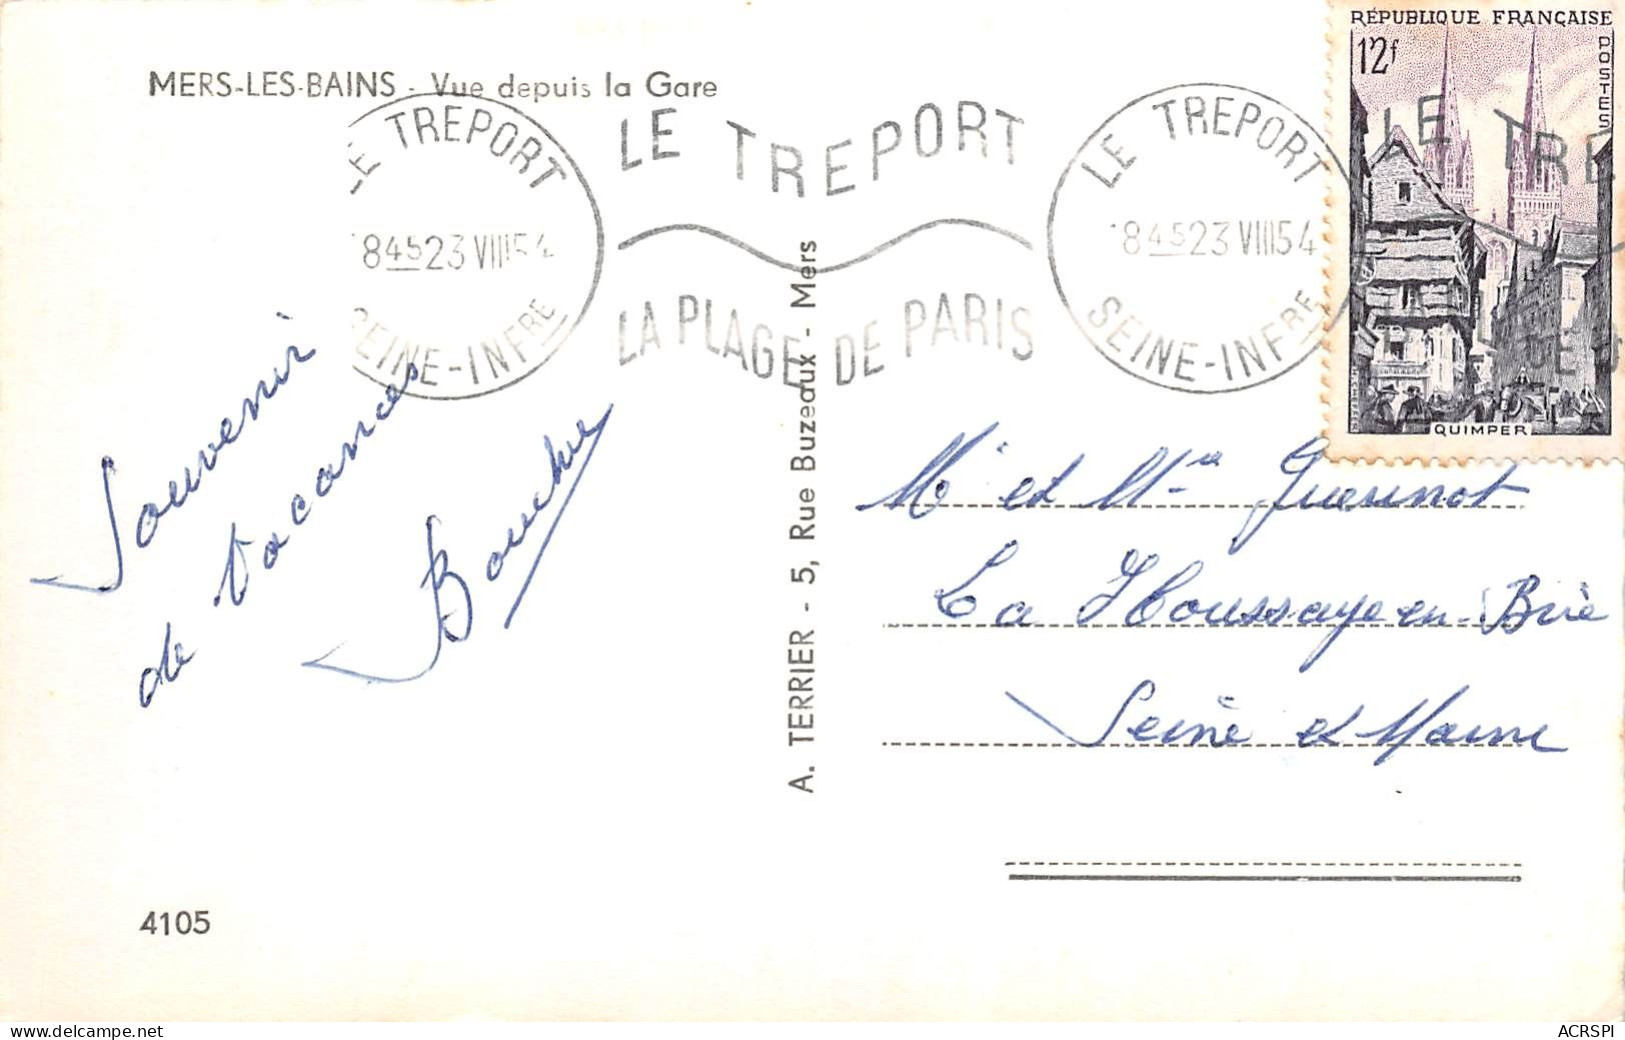 MERS-LES-BAINS - Vue depuis la Gare
RÉPUBLIQUE FRANÇAISE
12f
POSTES
QUIMPER
LE TREPORT
845 23 VIII 54
SEINE-INFRE
LE TREPORT
LA PLAGE DE PARIS
LE TREPORT
1845 23 VIII 54
SEINE-INFRE
LE TRE
DE
Souvenir
de Vacances
Bouche
A. TERRIER - 5, Rue Buzeaux - Mers
Mr et Mme Guerinot
La Houssaye-en-Brie
Seine et Marne
4105
www.delcampe.net
ACRSPI